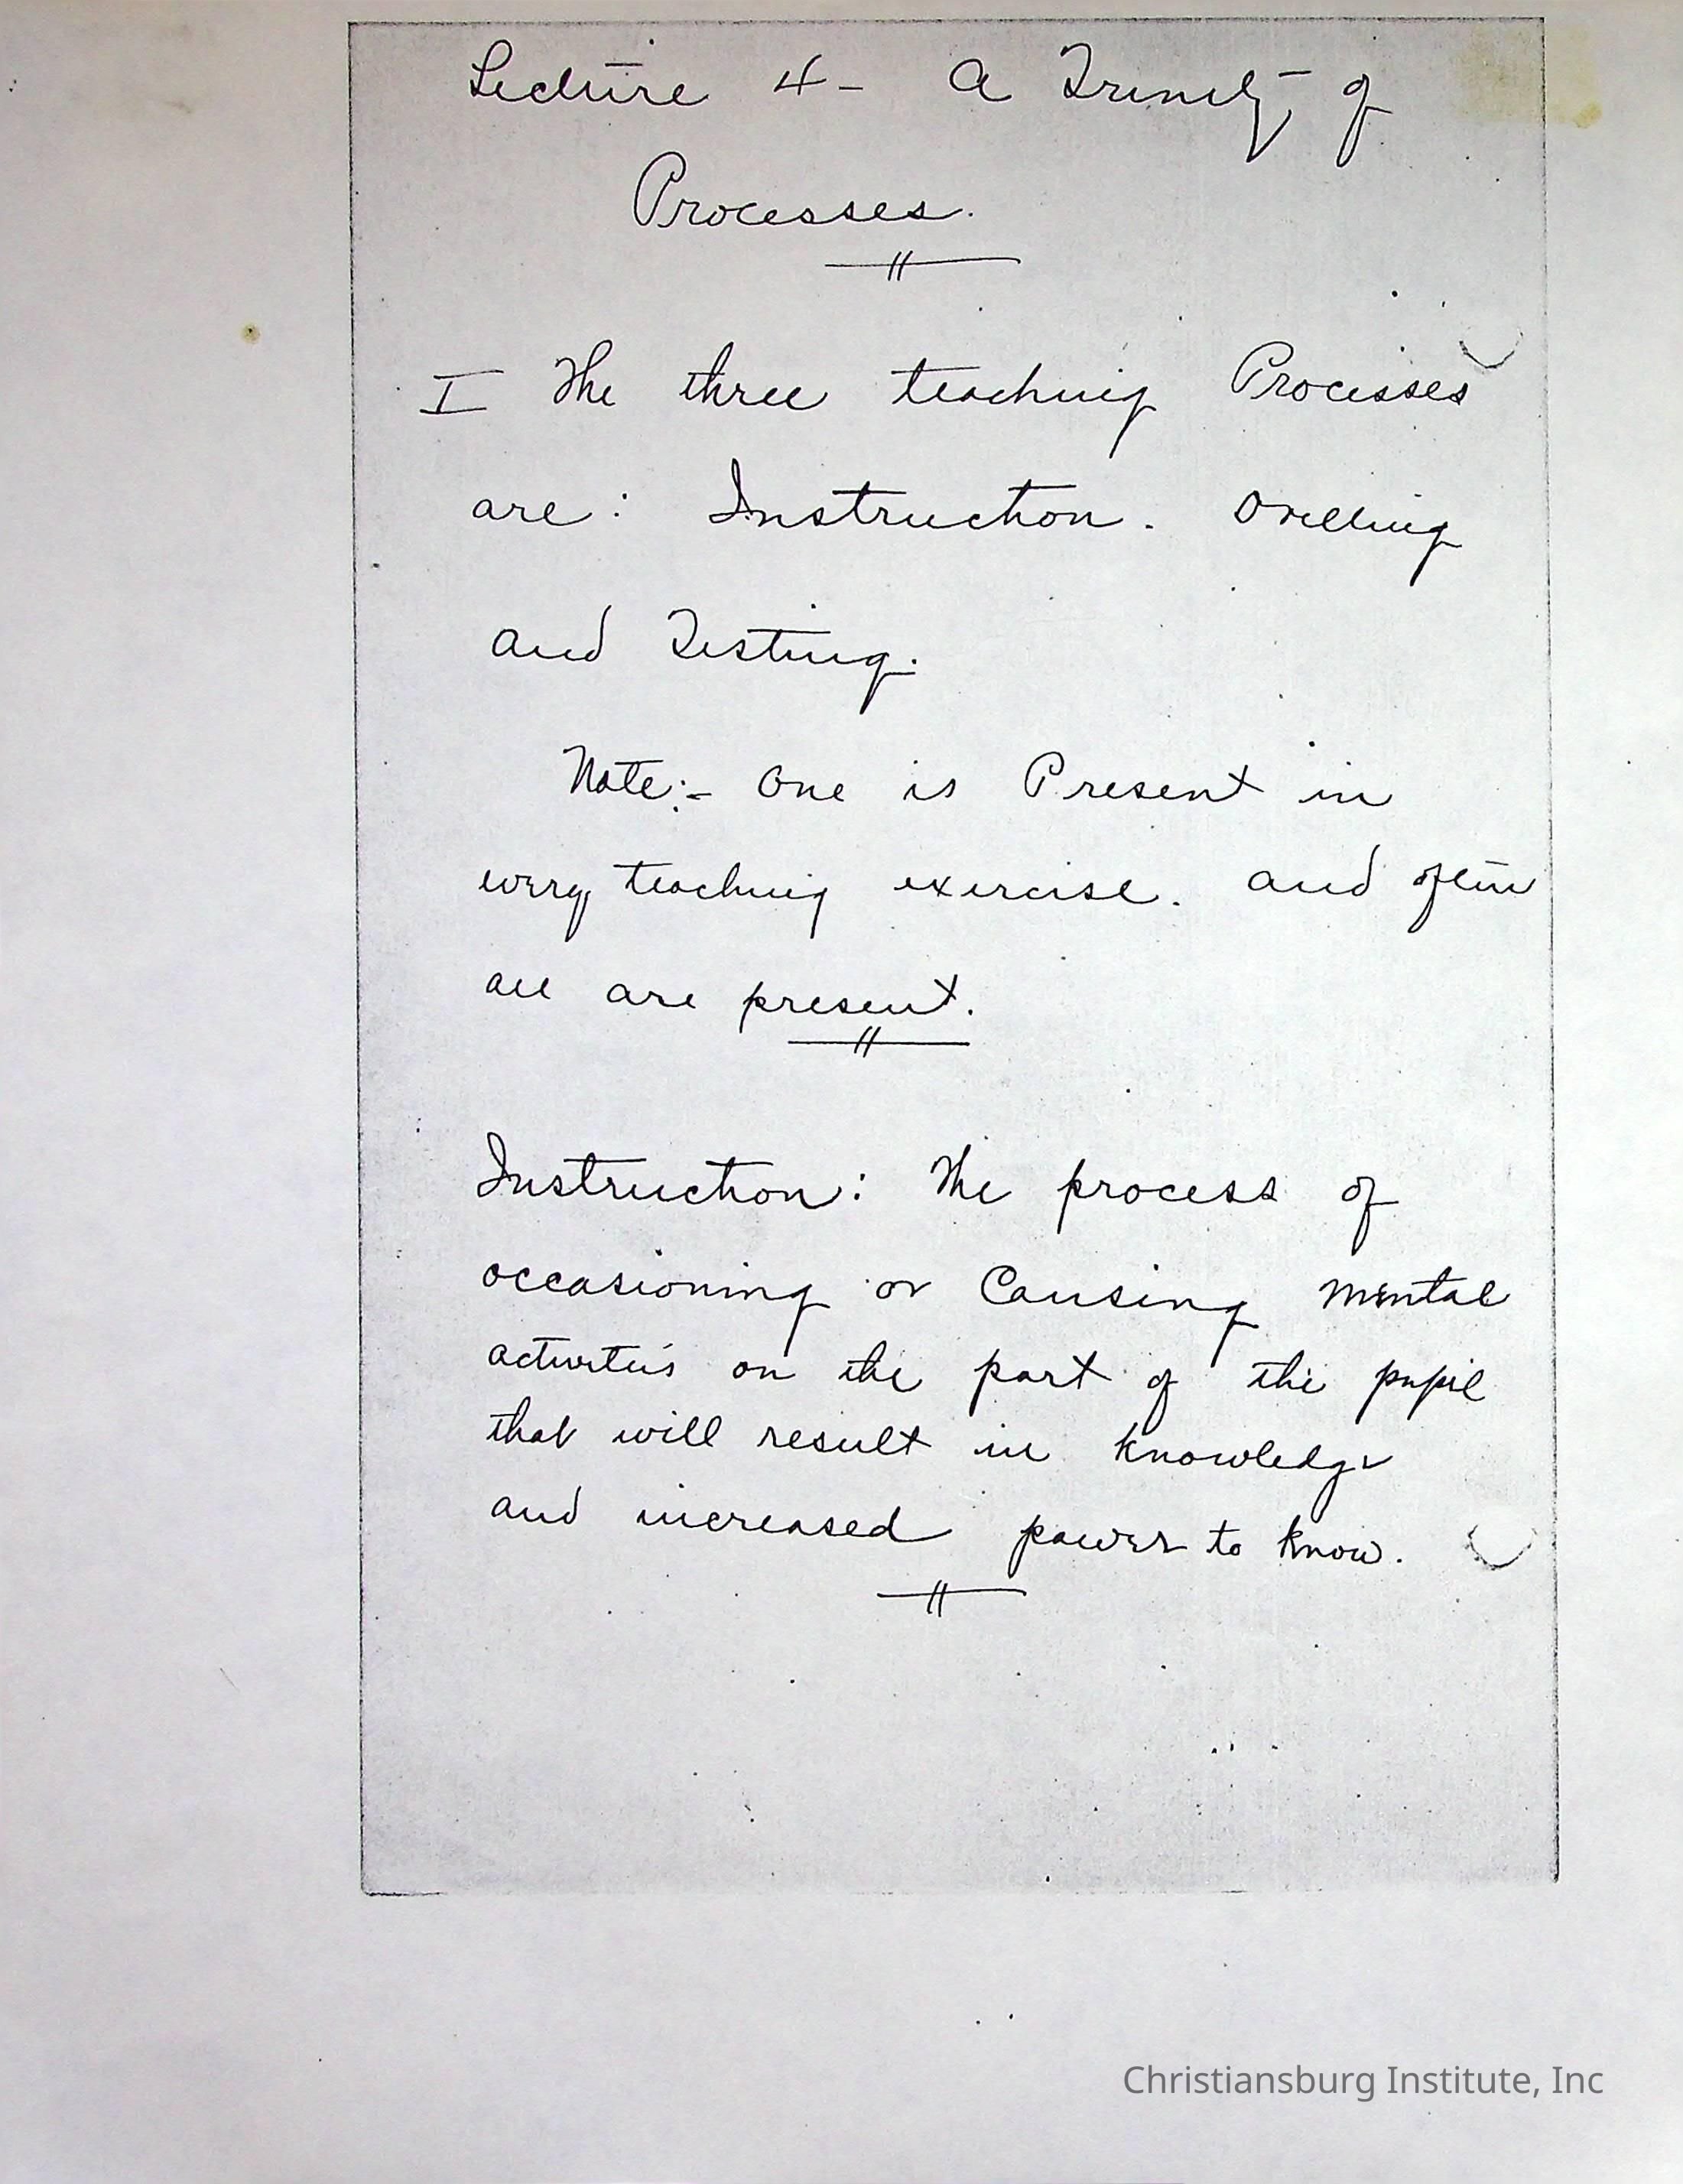 Lecture 4 - A Trinity of
Processes.
I The three teaching Processes
are: Instruction. Drilling
and Testing.
Note:- One is Present in
every teaching exercise. and often
all are present.
Instruction: The process of
occasioning or Causing mental
activities on the part of the pupil
that will result in knowledge
and increased power to know.
Christiansburg Institute, Inc